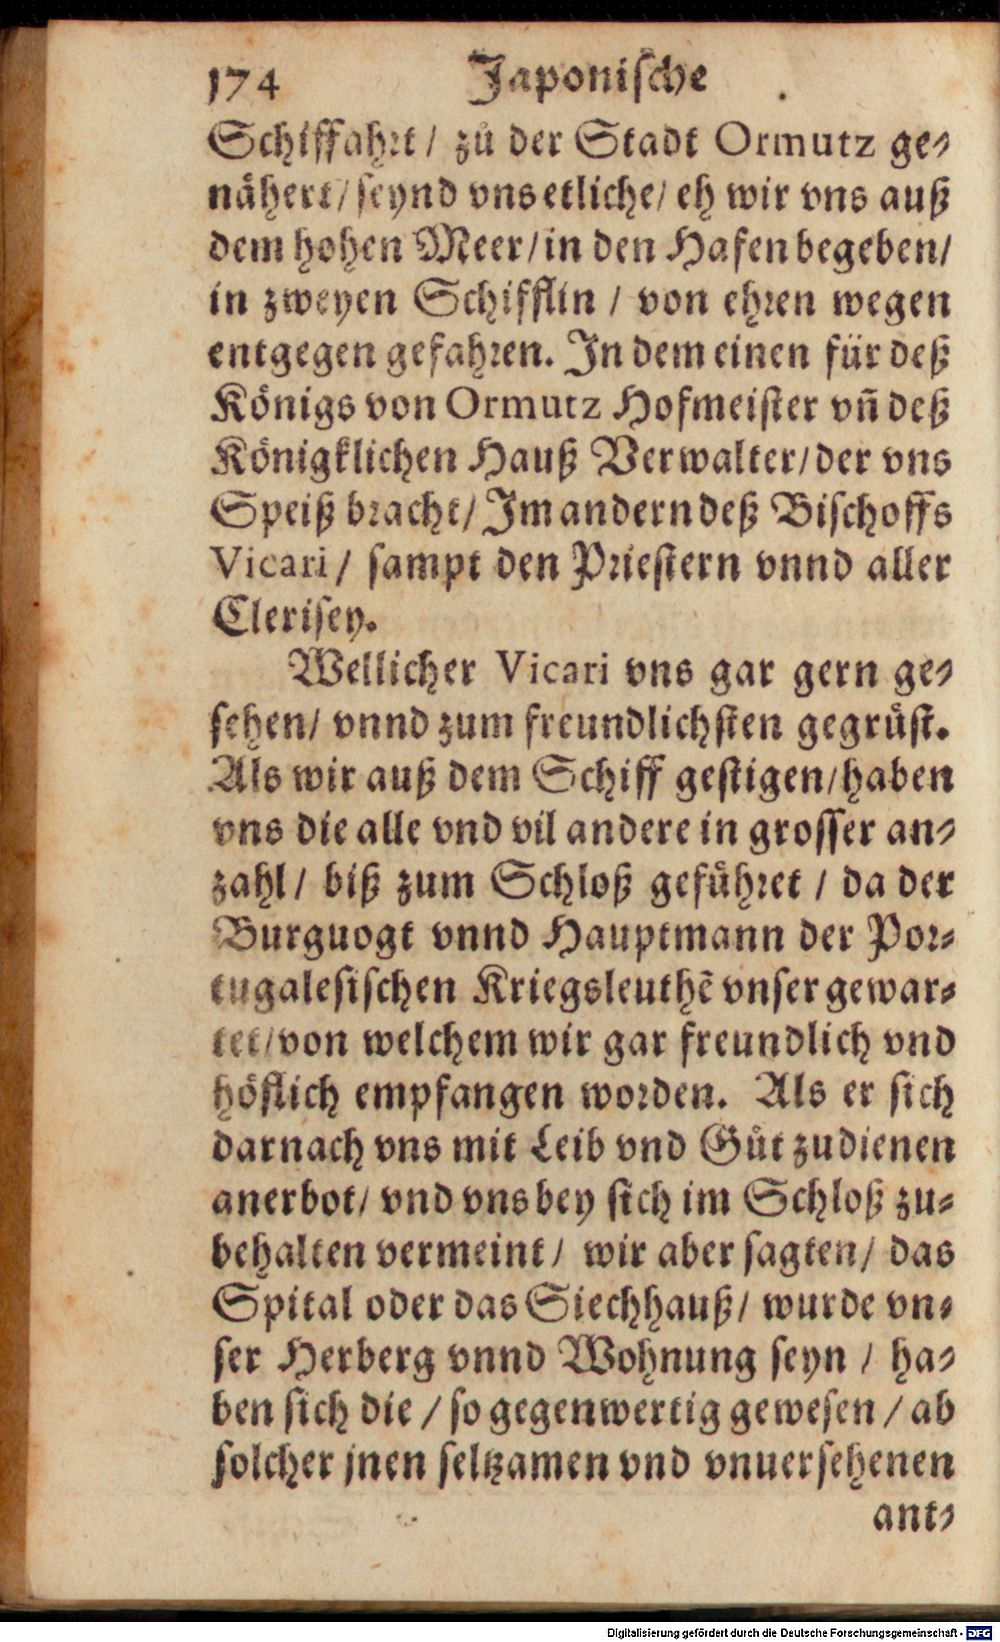 174 Japonische
Schiffahrt / zů der Stadt Ormutz ge-
nähert / seynd vns etliche / eh wir vns auß
dem hohen Meer / in den Hafen begeben /
in zweyen Schifflin / von ehren wegen
entgegen gefahren. In dem einen für deß
Königs von Ormutz Hofmeister vñ deß
Königklichen Hauß Verwalter / der vns
Speiß bracht / Im andern deß Bischoffs
Vicari / sampt den Priestern vnnd aller
Clerisey.
Wellicher Vicari vns gar gern ge-
sehen / vnnd zum freundlichsten gegrüst.
Als wir auß dem Schiff gestigen / haben
vns die alle vnd vil andere in grosser an-
zahl / biß zum Schloß geführet / da der
Burguogt vnnd Hauptmann der Por-
tugalesischen Kriegsleuthẽ vnser gewar-
tet / von welchem wir gar freundlich vnd
höflich empfangen worden. Als er sich
darnach vns mit Leib vnd Gůt zudienen
anerbot / vnd vns bey sich im Schloß zu-
behalten vermeint / wir aber sagten / das
Spital oder das Siechhauß / wurde vn-
ser Herberg vnnd Wohnung seyn / ha-
ben sich die / so gegenwertig gewesen / ab
solcher jnen seltzamen vnd vnuersehenen
ant-
Digitalisierung gefördert durch die Deutsche Forschungsgemeinschaft - DFG